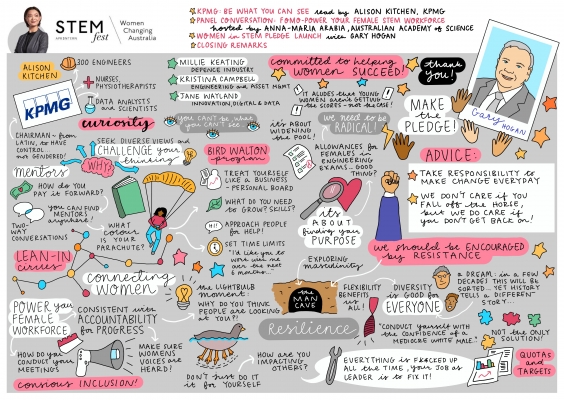 STEM
fest
APERINTURA
Women
Changing
Australia
KPMG: BE WHAT YOU CAN SEE read by ALISON KITCHEN, KPMG
PANEL CONVERSATION: FOMO-POWER YOUR FEMALE STEM WORKFORCE
hosted by ANNA-MARIA ARABIA, AUSTRALIAN ACADEMY OF SCIENCE
WOMEN in STEM PLEDGE LAUNCH with GARY HOGAN
CLOSING REMARKS
ALISON
KITCHEN
300 ENGINEERS
NURSES,
PHYSIOTHERAPISTS
DATA ANALYSTS
and SCIENTISTS
KPMG
curiosity
CHAIRMAN = from
LATIN, to HAVE
CONTROL
not GENDERED!
SEEK DIVERSE VIEWS and
CHALLENGE your
thinking
WHY?
MILLIE KEATING
DEFENCE INDUSTRY
KRISTINA CAMPBELL
ENGINEERING and ASSET MGMT
JANE WAYLAND
INNOVATION, DIGITAL & DATA
you CAN'T be what
you CAN'T SEE
BIRD WALTON
program
TREAT YOURSELF
LIKE a BUSINESS
- PERSONAL BOARD
WHAT DO YOU NEED
to GROW? SKILLS?
HI!
APPROACH PEOPLE
for HELP!
SET TIME LIMITS
"I'd like you to
work with me
over the next
6 months..."
mentors
HOW do YOU
PAY it FORWARD?
you CAN FIND
MENTORS
anywhere!
TWO-WAY
CONVERSATIONS
WHAT
COLOUR
is YOUR
PARACHUTE?
LEAN-IN
circles
connecting
WOMEN
the LIGHTBULB
MOMENT:
WHY DO YOU THINK
PEOPLE are LOOKING
at YOU?!
POWER your
FEMALE
WORKFORCE
CONSISTENT with
ACCOUNTABILITY
for PROGRESS
HOW do YOU
CONDUCT your
MEETINGS
MAKE SURE
WOMEN'S
VOICES are
HEARD!
conscious INCLUSION!
DON'T JUST DO IT
for YOURSELF
HOW are YOU
IMPACTING
OTHERS?
committed to helping
WOMEN SUCCEED!
it's ABOUT
WIDENING the
POOL!
we need to be
RADICAL!
ALLOWANCES for
FEMALES in
ENGINEERING
EXAMS... GOOD
THING?
it's
ABOUT
finding your
PURPOSE
EXPLORING
masculinity
the MAN
CAVE
FLEXIBILITY
BENEFITS
us ALL!
Resilience
thank
you!
MAKE
the
PLEDGE!
Gary
HOGAN
ADVICE:
TAKE RESPONSIBILITY to
MAKE CHANGE EVERYDAY
WE DON'T CARE if YOU
FALL off the HORSE,
but WE DO CARE if
you DON'T GET BACK on!
we should be ENCOURAGED
by RESISTANCE
DIVERSITY
is GOOD for
EVERYONE
a DREAM: in a FEW
DECADES THIS WILL BE
SORTED... YET HISTORY
TELLS a DIFFERENT
STORY...
"CONDUCT yourself with
the CONFIDENCE of a
MEDIOCRE WHITE MALE."
NOT the ONLY
SOLUTION!
QUOTAS and
TARGETS
EVERYTHING IS F*CKED UP
ALL the TIME, YOUR JOB as
LEADER is to FIX IT!